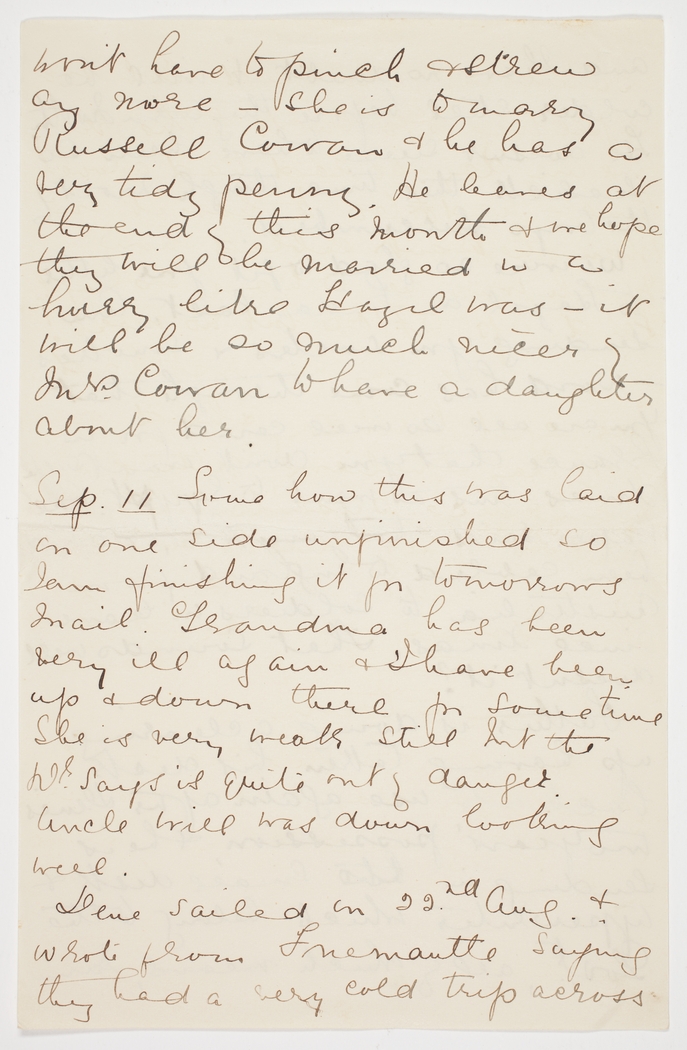 wont have to pinch & strew
any more – She is to marry
Russell Cowan & he has a
very tidy penny. He leaves at
the end of this month & we hope
they will be married in a
hurry like Hazel was – it
will be so much nicer for
Mrs. Cowan to have a daughter
about her.
Sep. 11 Some how this was laid
on one side unfinished so
I am finishing it for tomorrows
mail. Grandma has been
very ill again & I have been
up & down there for sometime
She is very weak still but the
Dr. says is quite out of danger.
Uncle Will was down looking
well.
sailed on 22nd Aug. &
wrote from Fremantle saying
they had a very cold trip across